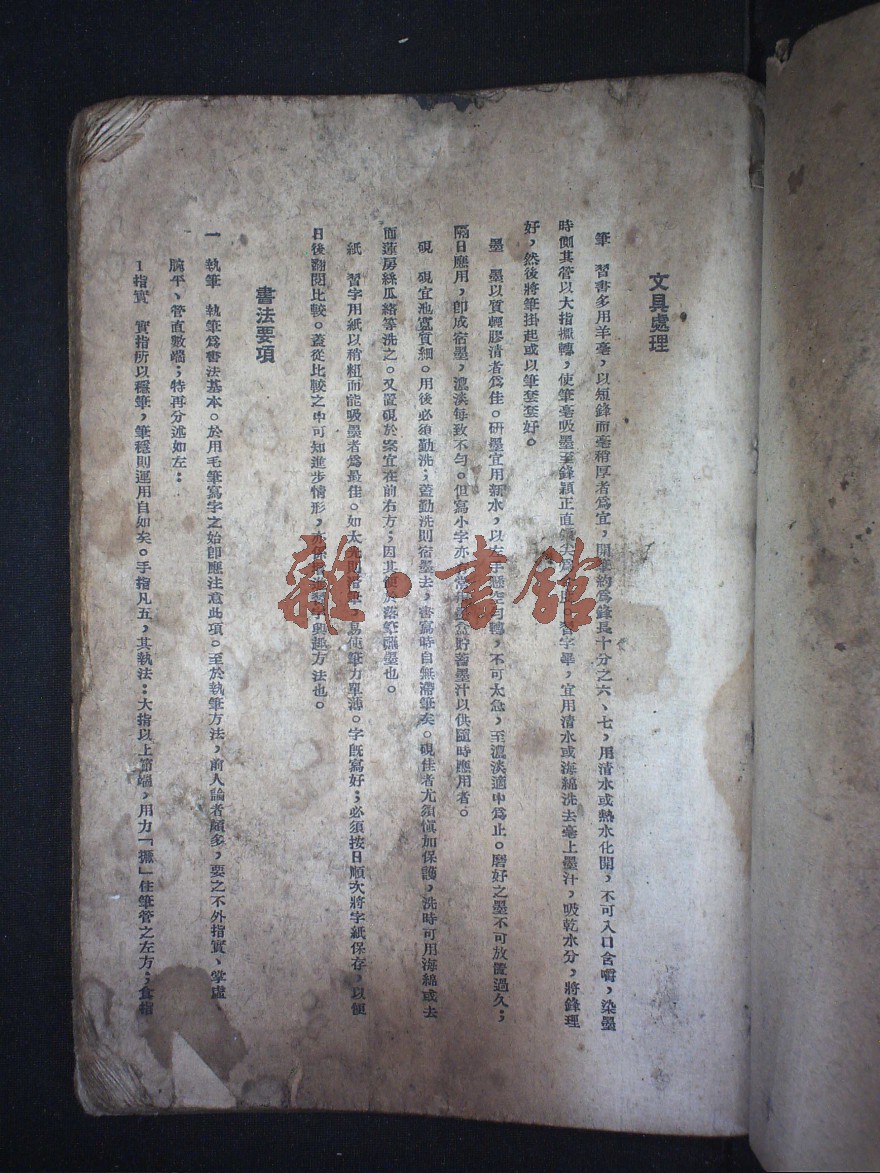 文具處理
筆　習書多用羊毫，以短鋒而毫稍厚者為宜，開筆約為鋒長十分之六、七，用清水或熱水化開，不可入口含嚼，染墨
時側其管以大指撚轉，使筆毫吸墨至鋒穎正直 習字畢，宜用清水或海綿洗去毫上墨汁，吸乾水分，將鋒理
好，然後將筆掛起或以筆套套好。
墨　墨以質輕膠清者為佳。研墨宜用新水，以 勻轉，不可太急，至濃淡適中為止。磨好之墨不可放置過久；
隔日應用，即成宿墨，濃淡每致不勻。但寫小字亦 貯蓄墨汁以供隨時應用者。
硯　硯宜池寬質細。用後必須勤洗；蓋勤洗則宿墨去，書寫時自無滯筆矣。硯佳者尤須愼加保護，洗時可用海綿或去
面蓮房絲瓜絡等洗之。又置硯於案宜在前右方；因其便於落筆蘸墨也。
紙　習字用紙以稍粗而能吸墨者為最佳。如太光則 易使筆力單薄。字既寫好；必須按日順次將字紙保存，以便
日後翻閱比較。蓋從比較之中可知進步情形， 興趣方法也。
書法要項
一　執筆　執筆為書法基本。於用毛筆寫字之始即應注意此項。至於執筆方法，前人論者頗多，要之不外指實、掌虛
腕平、管直數端；特再分述如左：
1指實　實指所以穩筆，筆穩則運用自如矣。手指凡五，其執法：大指以上節端，用力「擫」住筆管之左方；食指
雜·書館